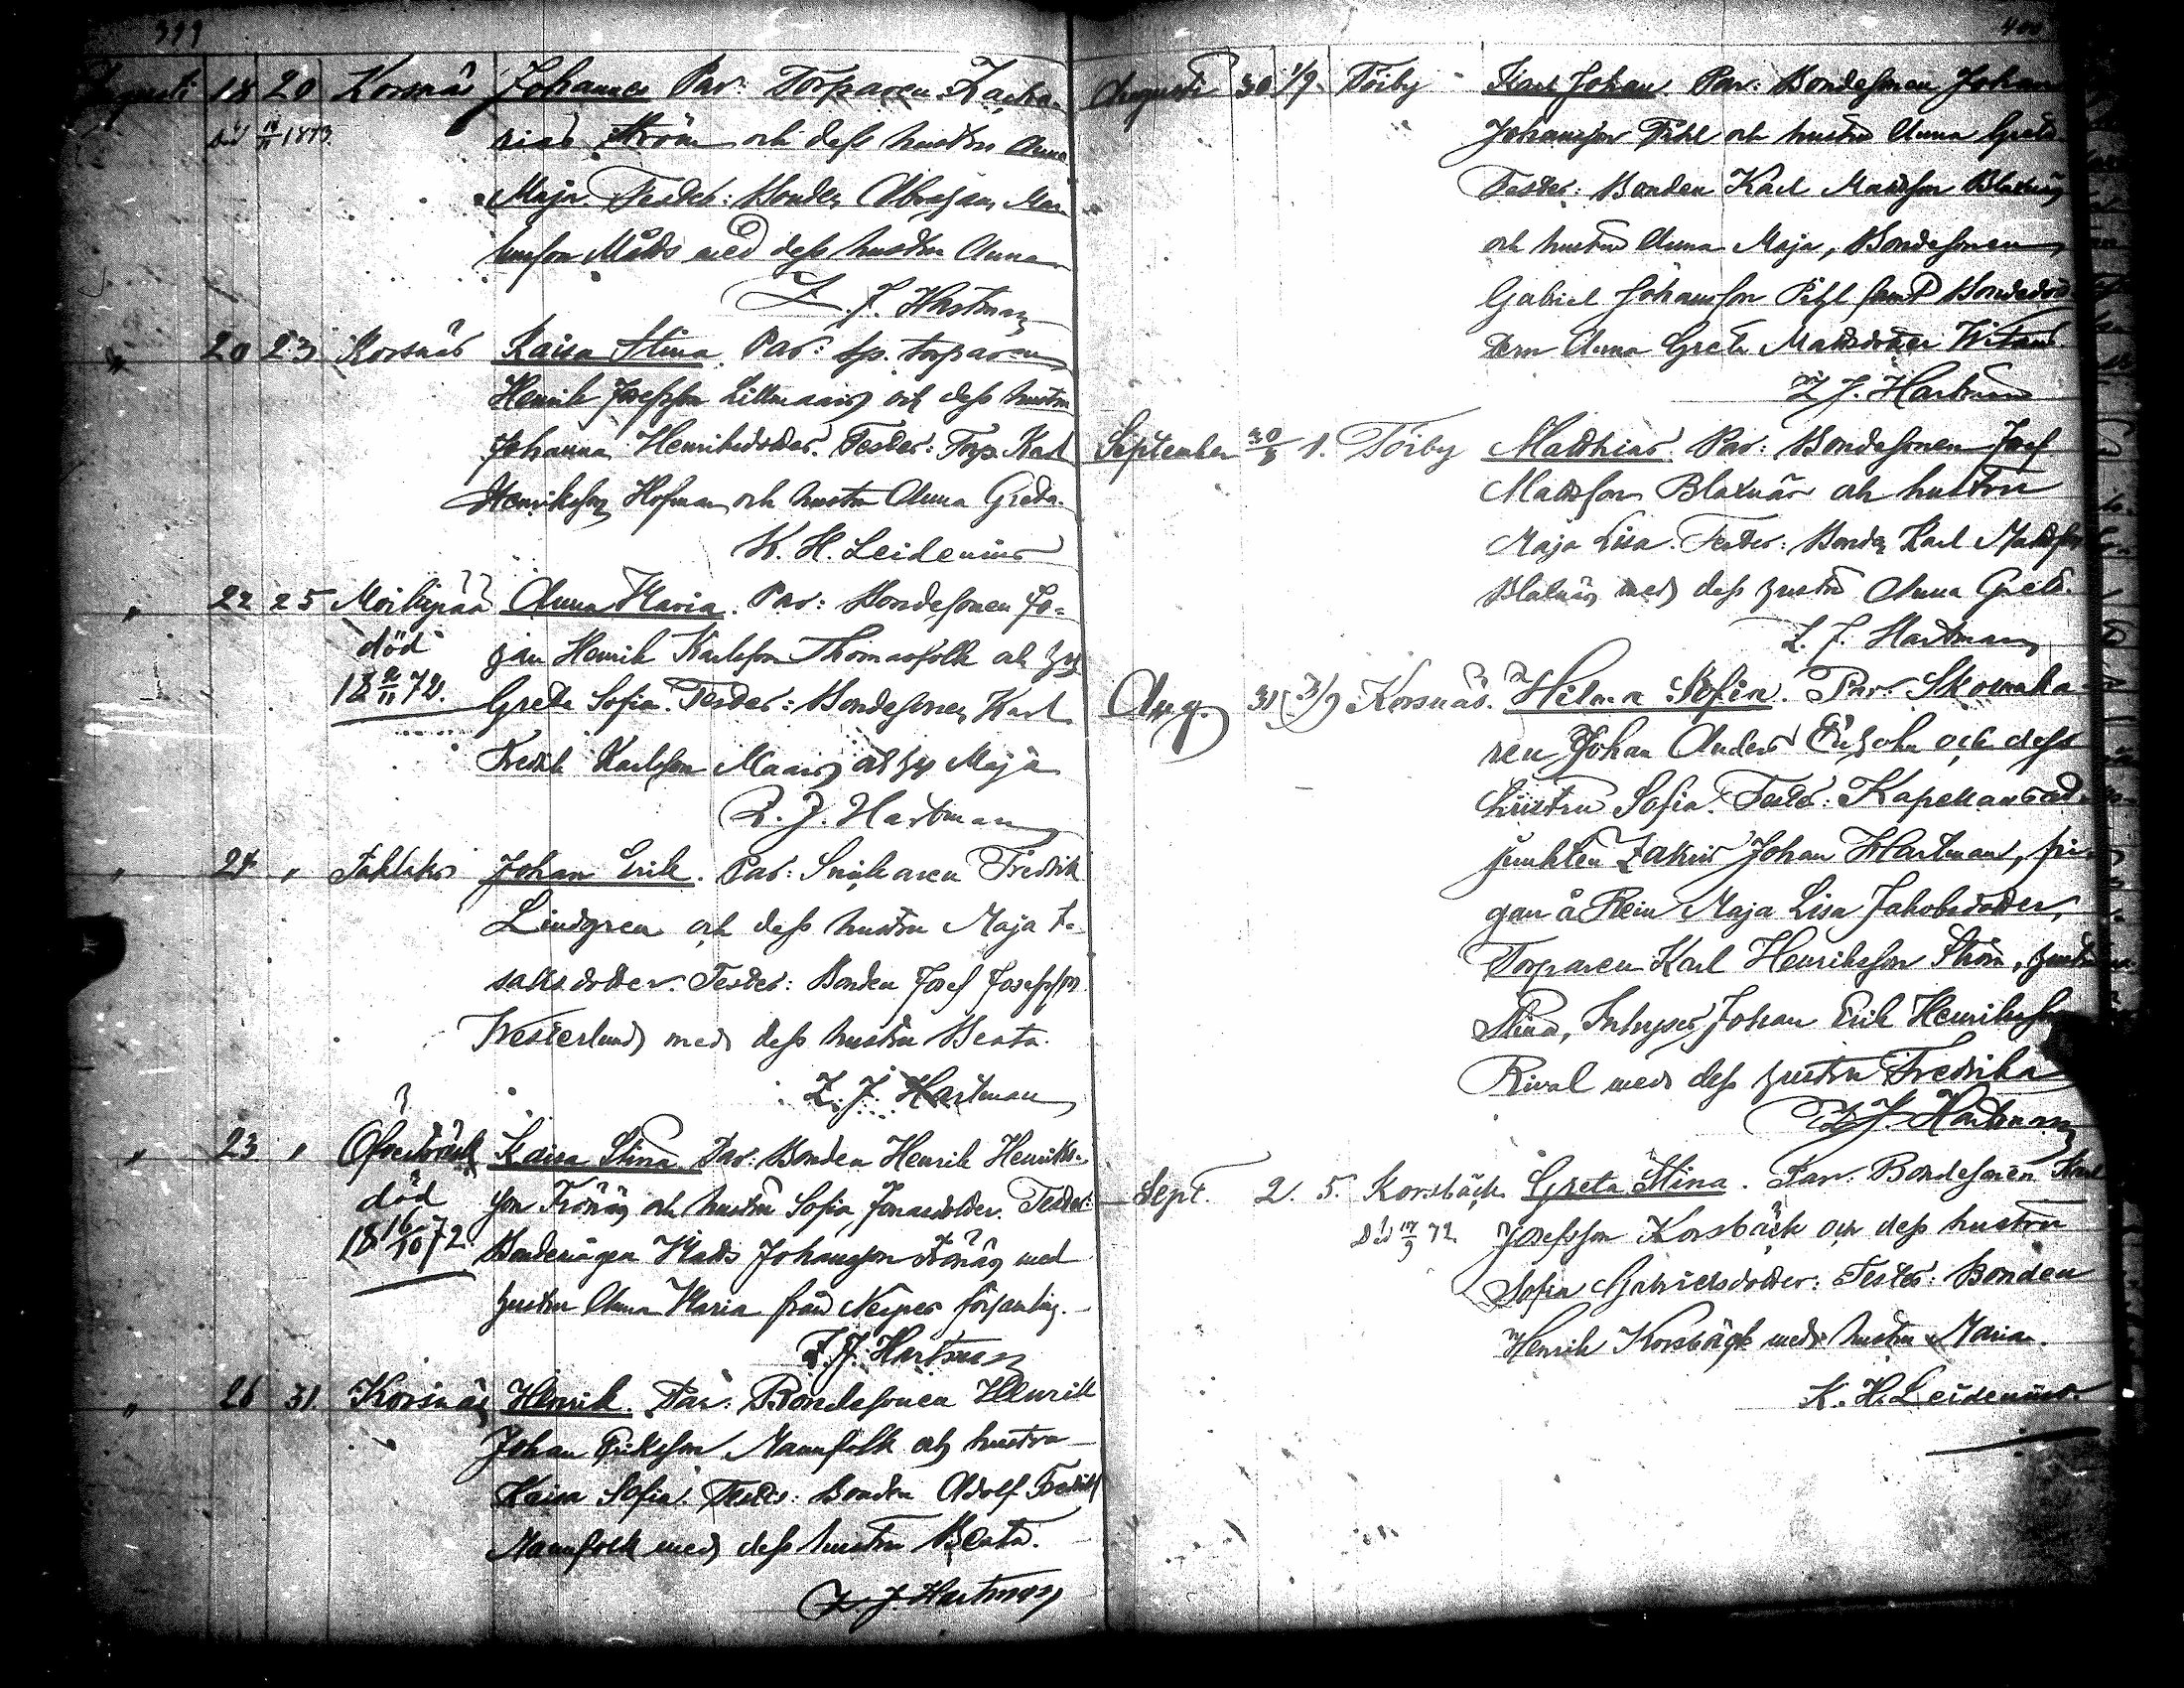 399
Augusti 18 20 Korsnäs Johannes Par: Torparen Zacha-
död 1873. rias Ström och dess hustru Anna
Maja Testes: Bonden Abraham
Matts med dess hustru Anna
Z. J. Hartman
" 20 23 Korsnäs Kaisa Stina. Par: sp. torparen
Henrik Josefsson Littmans och dess hustru
Johanna Henriksdotter. Testes: Torp. Karl
Henriksson Hofman och hustru Anna Greta.
K. H. Leidenius
" 22 25 Moikipää Anna Maria. Par: Bondesonen Jo-
död han Henrik Karlsson Thomasfolk och h:u
18 2/11 72. Greta Sofia. Testes: Bondesonen Karl
Fredrik Karlsson och h:u Maja
Z. J. Hartman
" 24 " Taklaks Johan Erik. Par: Snickaren Fredrik
Lindgren och dess hustru Maja I-
saksdotter. Testes: Bonden Josef Josefsson
Westerlund med dess hustru Beata.
Z. J. Hartman
" 23 " Öfverträsk Kaisa Stina Par: Bonden Henrik Henriks-
död son Trånäs och hustru Sofia Jonasdotter. Testes:
18 16/10 72. Bondemågen Matts Johansson Trånäs med
hustru Anna Maria från Nerpes församling.
Z. J. Hartman
" 26 31 Korsnäs Henrik. Par: Bondesonen Henrik
Johan Eriksson Mannfolk och hustru
Kaisa Sofia. Testes: Bonden Adolf Fredrik
Mannfolk med dess hustru Beata.
Z. J. Hartman
400
Augusti 30 1/9 Töjby Karl Johan Par: Bondesonen Johan
Johansson Pihl och hustru Anna Greta
Testes: Bonden Karl Mattsson Blaxnäs
och hustru Anna Maja, Bondesonen
Gabriel Johansson Pihl samt Bondedot-
tern Anna Greta Mattsdotter
Z. J. Hartman
September 30/8 1. Töjby Matthias. Par: Bondesonen Josef
Mattsson Blaxnäs och hustru
Maja Lisa. Testes: Bonden Karl Mattsson
Blaxnäs med dess hustru Anna Greta.
Z. J. Hartman
Aug. 31 (3/9) Korsnäs. Hilma Sofia. Par: Skomaka-
ren Johan Anders och dess
hustru Sofia. Testes: Kapellansad-
junkten Zakris Johan Hartman, pi-
gan å Rein Maja Lisa Jakobsdotter,
Torparen Karl Henriksson Ström, hustru
Stina, Inhyses Johan Erik Henriksson
Rival med dess hustru Fredrika
Z. J. Hartman
Sept. 2. 5. Korsbäck Greta Stina. Par: Bondesonen Karl
död 17/9 72 Josefsson Korsbäck och dess hustru
Sofia Gabrielsdotter: Testes: Bonden
Henrik Korsbäck med hustru Maria.
K. H. Leidenius.